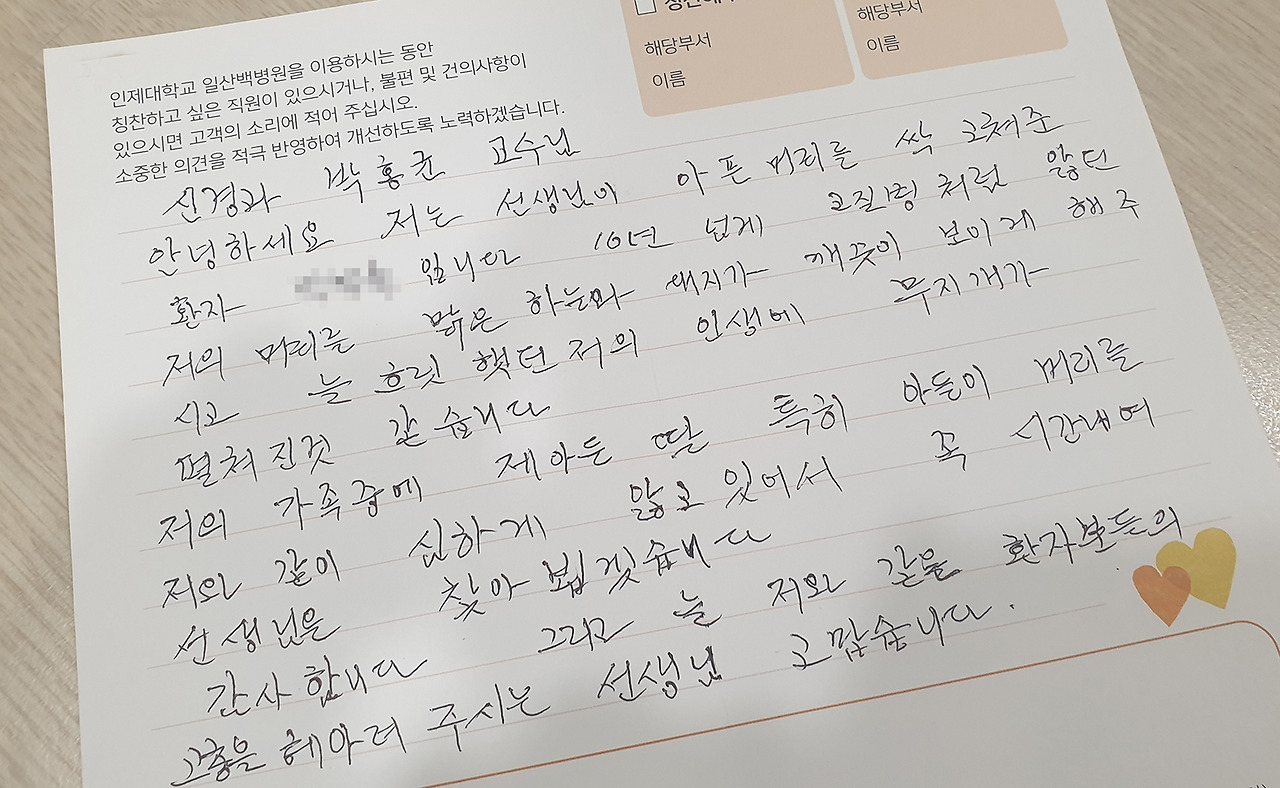 해당부서
이름
해당부서
이름
인제대학교 일산백병원을 이용하시는 동안
칭찬하고 싶은 직원이 있으시거나, 불편 및 건의사항이
있으시면 고객의 소리에 적어 주십시오.
소중한 의견을 적극 반영하여 개선하도록 노력하겠습니다.
신경과 박홍균 교수님
안녕하세요 저는 선생님이 아픈 머리를 싹 고쳐준
환자 입니다 10년 넘게 고질병처럼 앓던
저의 머리를 맑은 하늘과 돼지가 깨끗이 보이게 해주
시고 늘 흐릿 했던 저의 인생에 무지개가
펼쳐진것 같습니다
저의 가족중에 제아들 딸 특히 아들이 머리를
저와 같이 심하게 앓고 있어서 꼭 시간내여
선생님을 찾아 뵙겟습니다
감사합니다 그리고 늘 저와 같을 환자분들의
고충을 헤아려 주시는 선생님 고맙습니다.